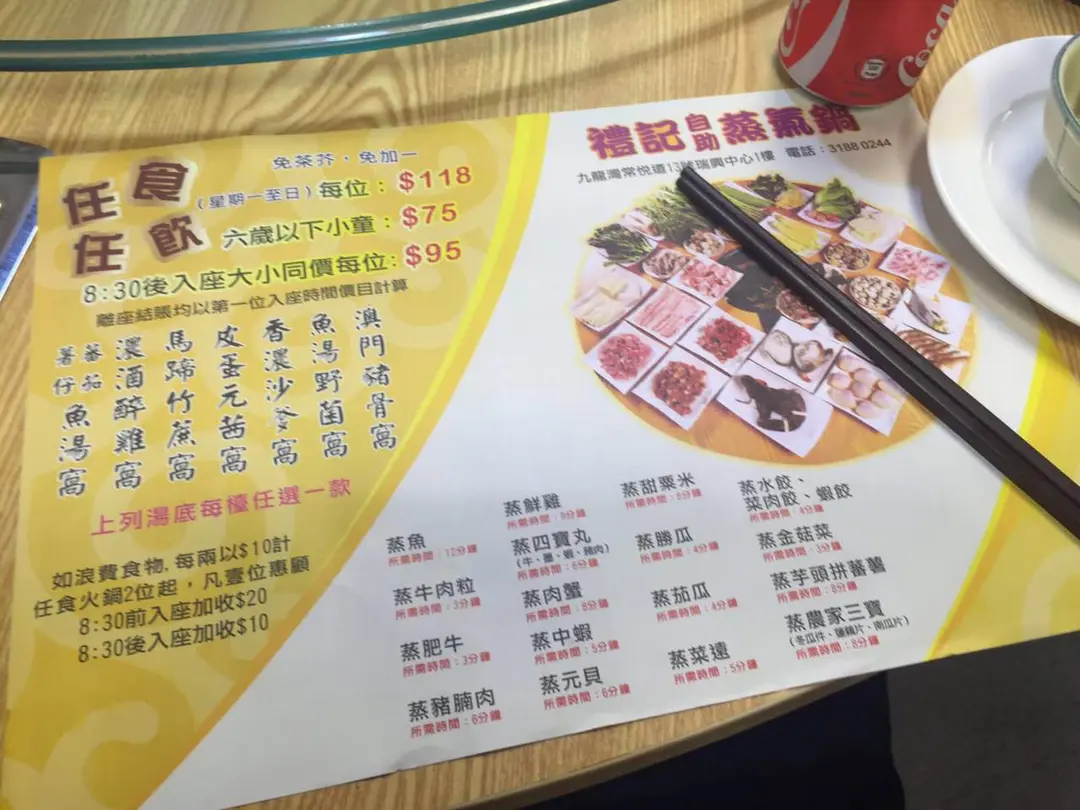 禮記自助蒸氣鍋
九龍灣常悅道13號瑞興中心1樓 電話：3188 0244
任食
任飲
免茶芥，免加一
(星期一至日)每位：$118
六歲以下小童：$75
8:30後入座大小同價每位:$95
離座結賬均以第一位入座時間價目計算
澳門豬骨窩
魚湯野菌窩
香濃沙爹窩
皮蛋元茜窩
馬蹄竹蔗窩
濃酒醉雞窩
蕃茄薯仔魚湯窩
上列湯底每檯任選一款
如浪費食物.每兩以$10計
任食火鍋2位起，凡壹位惠顧
8:30前入座加收$20
8:30後入座加收$10
蒸魚
所需時間：12分鐘
蒸牛肉粒
所需時間：3分鐘
蒸肥牛
所需時間：3分鐘
蒸豬腩肉
所需時間：6分鐘
蒸鮮雞
所需時間：8分鐘
蒸四寶丸
(牛、墨、蝦、豬肉)
所需時間：6分鐘
蒸肉蟹
所需時間：8分鐘
蒸中蝦
所需時間：5分鐘
蒸元貝
所需時間：6分鐘
蒸甜粟米
所需時間：8分鐘
蒸勝瓜
所需時間：4分鐘
蒸茄瓜
所需時間：4分鐘
蒸菜遠
所需時間：5分鐘
蒸水餃、
菜肉餃、蝦餃
所需時間：4分鐘
蒸金菇菜
所需時間：3分鐘
蒸芋頭拼蕃薯
所需時間：8分鐘
蒸農家三寶
所需時間：8分鐘